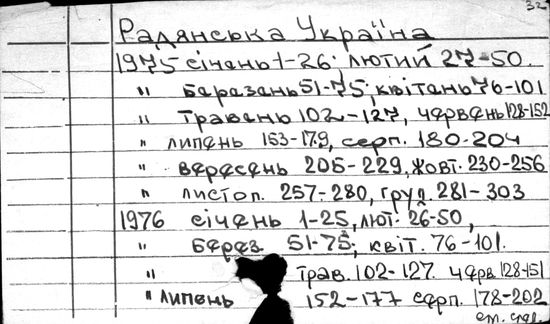 32
Радянська Україна
1975 січень 1-26; лютий 27-50.
" березень 51-75; квітень 76-101
" травень 102-127, червень 128-152
" липень 153-179, серп. 180-204
" вересень 205-229, жовт. 230-256
" листоп. 257-280, груд 281-303
1976 січень 1-25, лют. 26-50,
" берез. 51-75; квіт. 76-101.
" трав. 102-127 черв. 128-151
" липень 152-177 серп. 178-202
см. след.